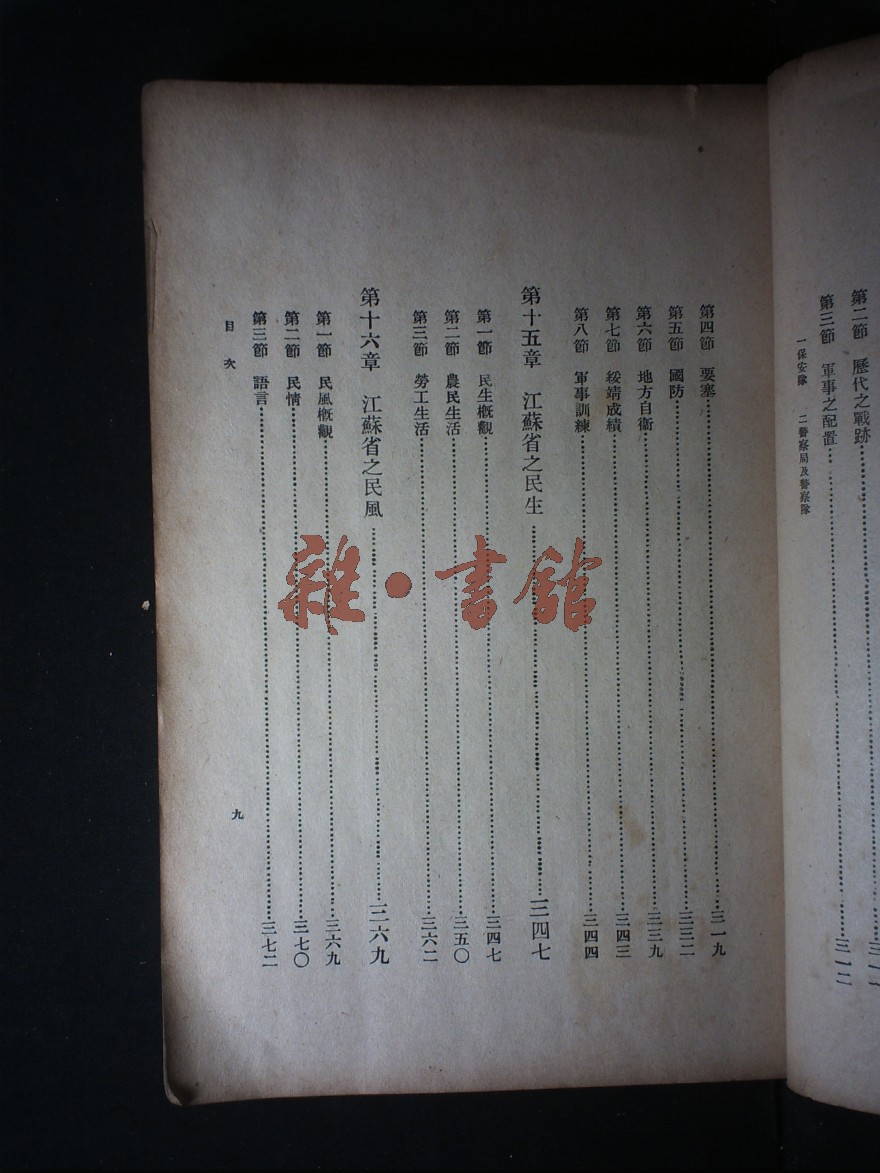 第二節　歷代之戰跡
第三節　軍事之配置……三一二
一保安隊　二警察局及警察隊
第四節　要塞……三一九
第五節　國防……三三二
第六節　地方自衞……三三九
第七節　綏靖成績……三四三
第八節　軍事訓練……三四四
第十五章　江蘇省之民生……三四七
第一節　民生概觀……三四七
第二節　農民生活……三五〇
第三節　勞工生活……三六二
第十六章　江蘇省之民風……三六九
第一節　民風概觀……三六九
第二節　民情……三七〇
第三節　語言……三七二
目次
九
雜·書館